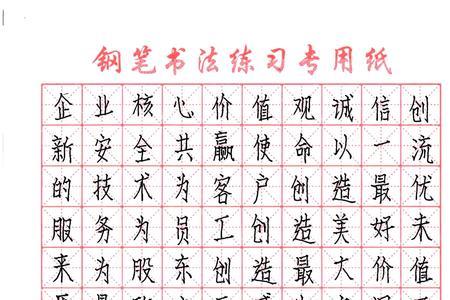 钢笔书法练习专用纸
企业核心价值观诚信创
新安全共赢使命以一流
的技术为客户创造最优
服务为员工创造美好未
来为股东创造最大价值